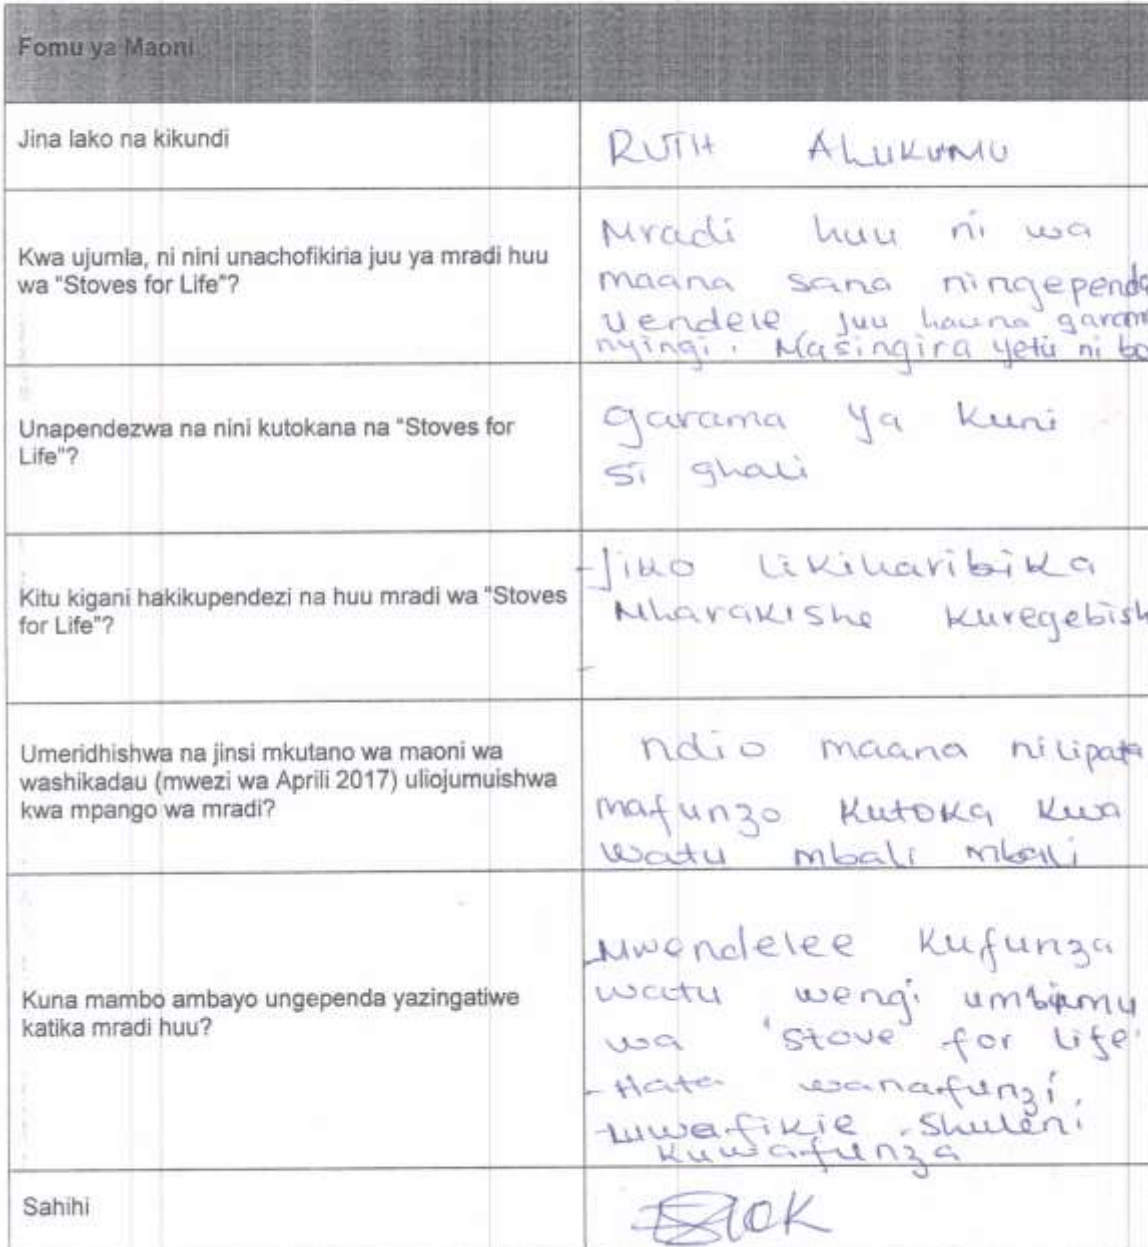 Fomu ya Maoni
Jina lako na kikundi
RUTH ALUKUMU
Kwa ujumla, ni nini unachofikiria juu ya mradi huu
wa "Stoves for Life"?
Mradi huu ni wa
maana sana ningependa
uendele juu hauna garam
nyingi. Masingira yetu ni bo
Unapendezwa na nini kutokana na "Stoves for
Life"?
garama ya kuni
si ghali
Kitu kigani hakikupendezi na huu mradi wa "Stoves
for Life"?
-Jiko likiharibika
Mharakishe kuregebish
-
Umeridhishwa na jinsi mkutano wa maoni wa
washikadau (mwezi wa Aprili 2017) uliojumuishwa
kwa mpango wa mradi?
ndio maana nilipata
mafunzo kutoka kwa
watu mbali mbali
Kuna mambo ambayo ungependa yazingatiwe
katika mradi huu?
-Mwendelee kufunza
watu wengi
wa 'stove for life'
-Hata wanafunzi,
-muwafikie shuleni
kuwafunza
Sahihi